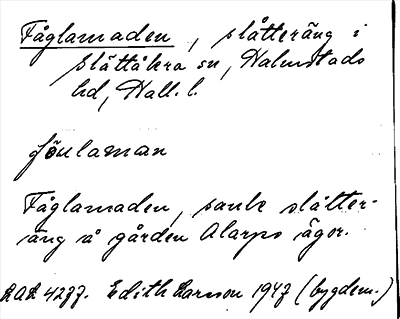 Fåglamaden, slåtteräng i
Slättåkra sn, Halmstads
hd, Hall. l.
föulaman
Fåglamaden, sank slåtter-
äng å gården Alarps ägor.
Edith Larsson 1947 (bygdem.)